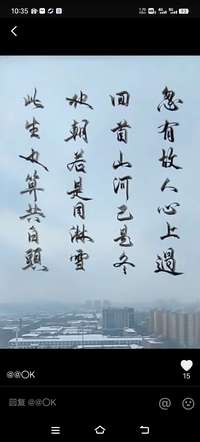 10:35
忽有故人心上過
回首山河已是冬
他朝若是同淋雪
此生也算共白頭
15
@@〇K
回复 @@〇K